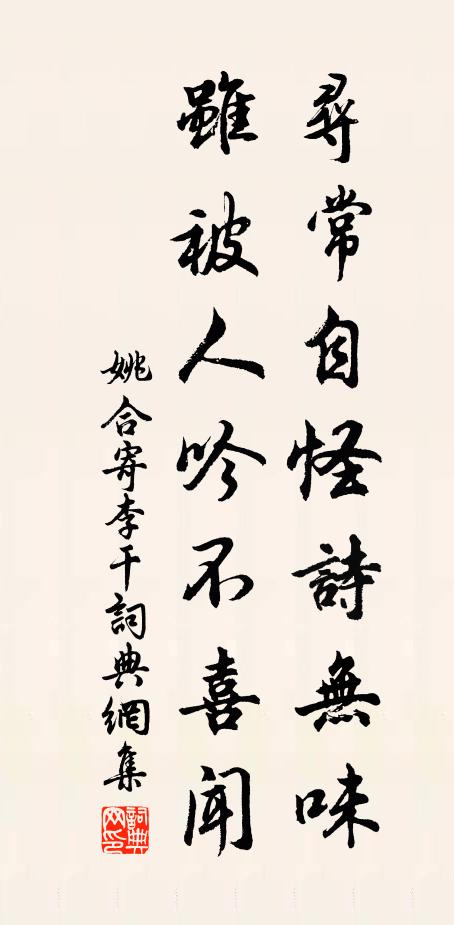 尋常自怪詩無味
雖被人吟不喜聞
姚合寄李干詞典網集
詞典網印